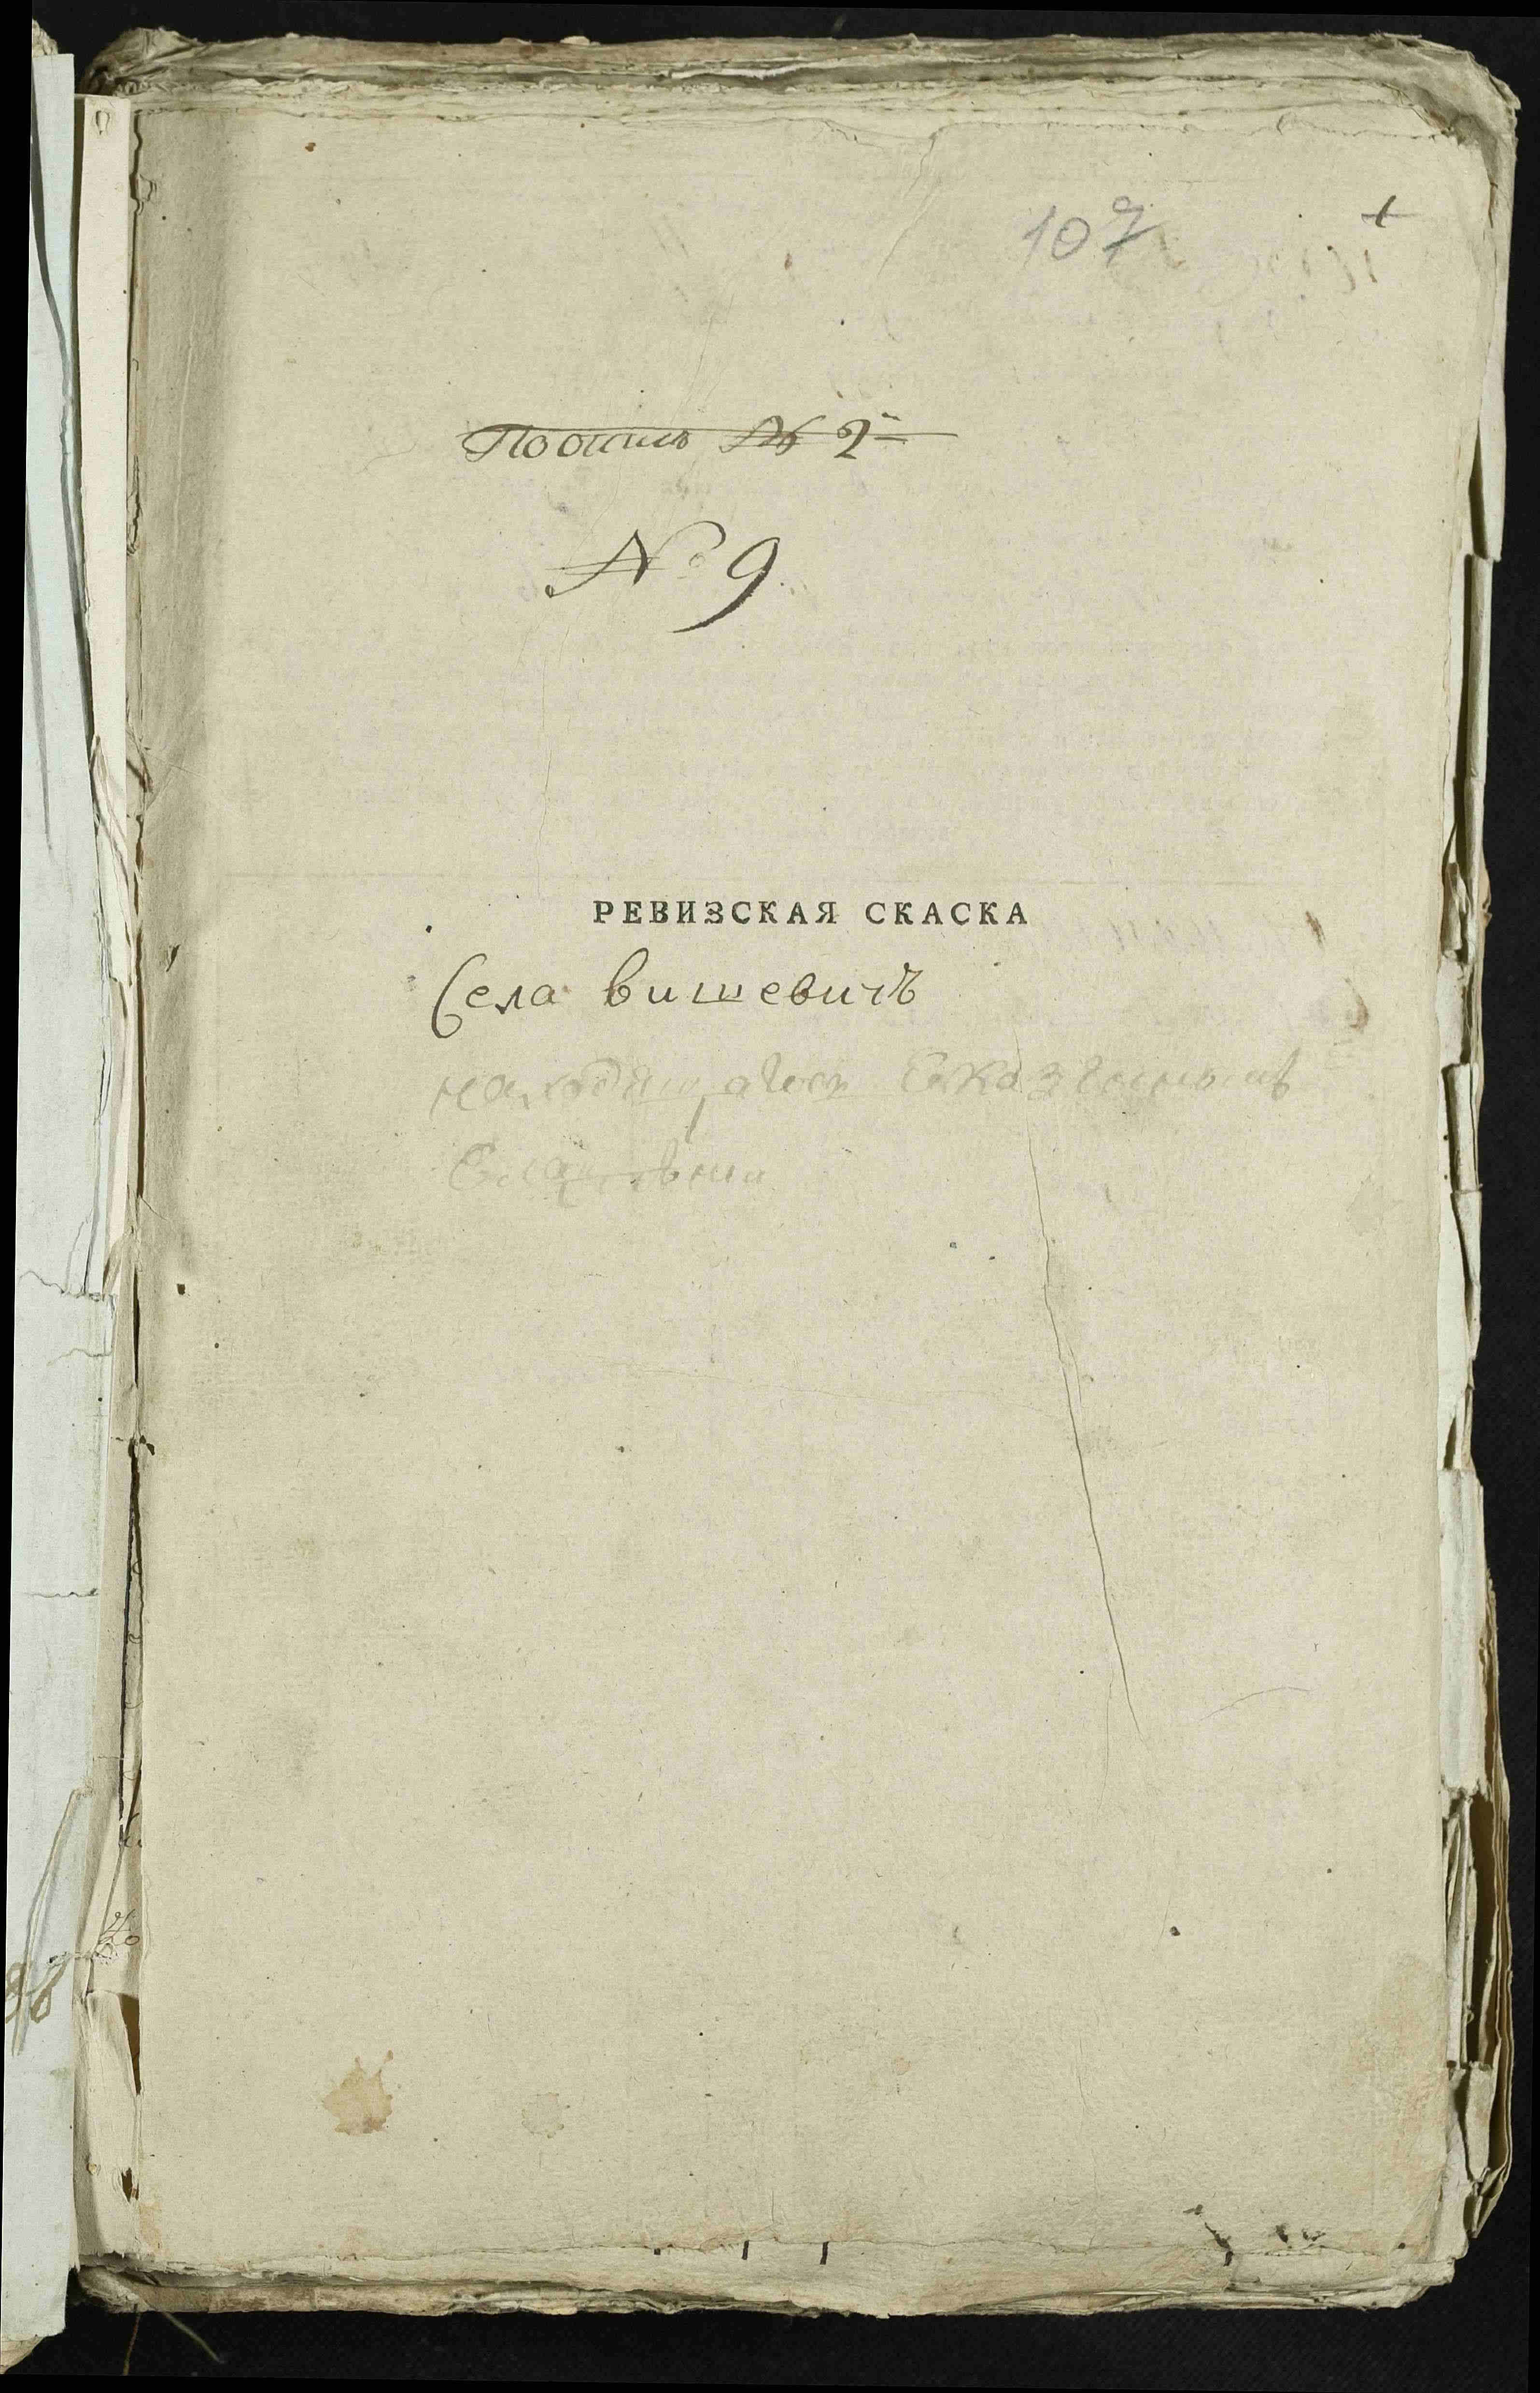 107
По описи № 2й
№ 9
РЕВИЗСКАЯ СКАСКА
Села вишевичъ
находящагося